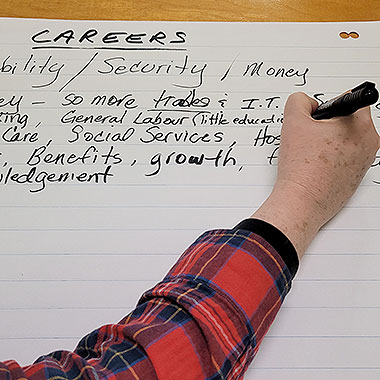 CAREERS
bility / Security / Money
ey - so more trades & I.T. S
ing, General Labour (little educati
Care, Social Services, Hos
, Benefits, growth, f
ledgement